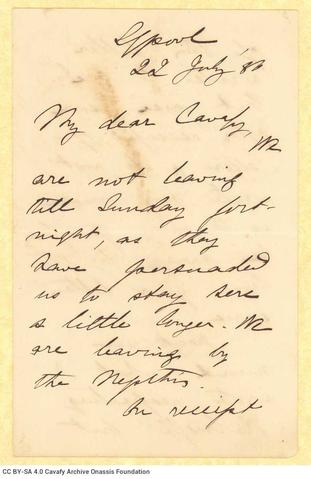 L'pool
22 July '86
My dear Cavafy,
We
are not leaving
till Sunday fort-
night, as they
have persuaded
us to stay here
a little longer. We
are leaving by
the Nepthis.
On receipt
CC BY-SA 4.0 Cavafy Archive Onassis Foundation